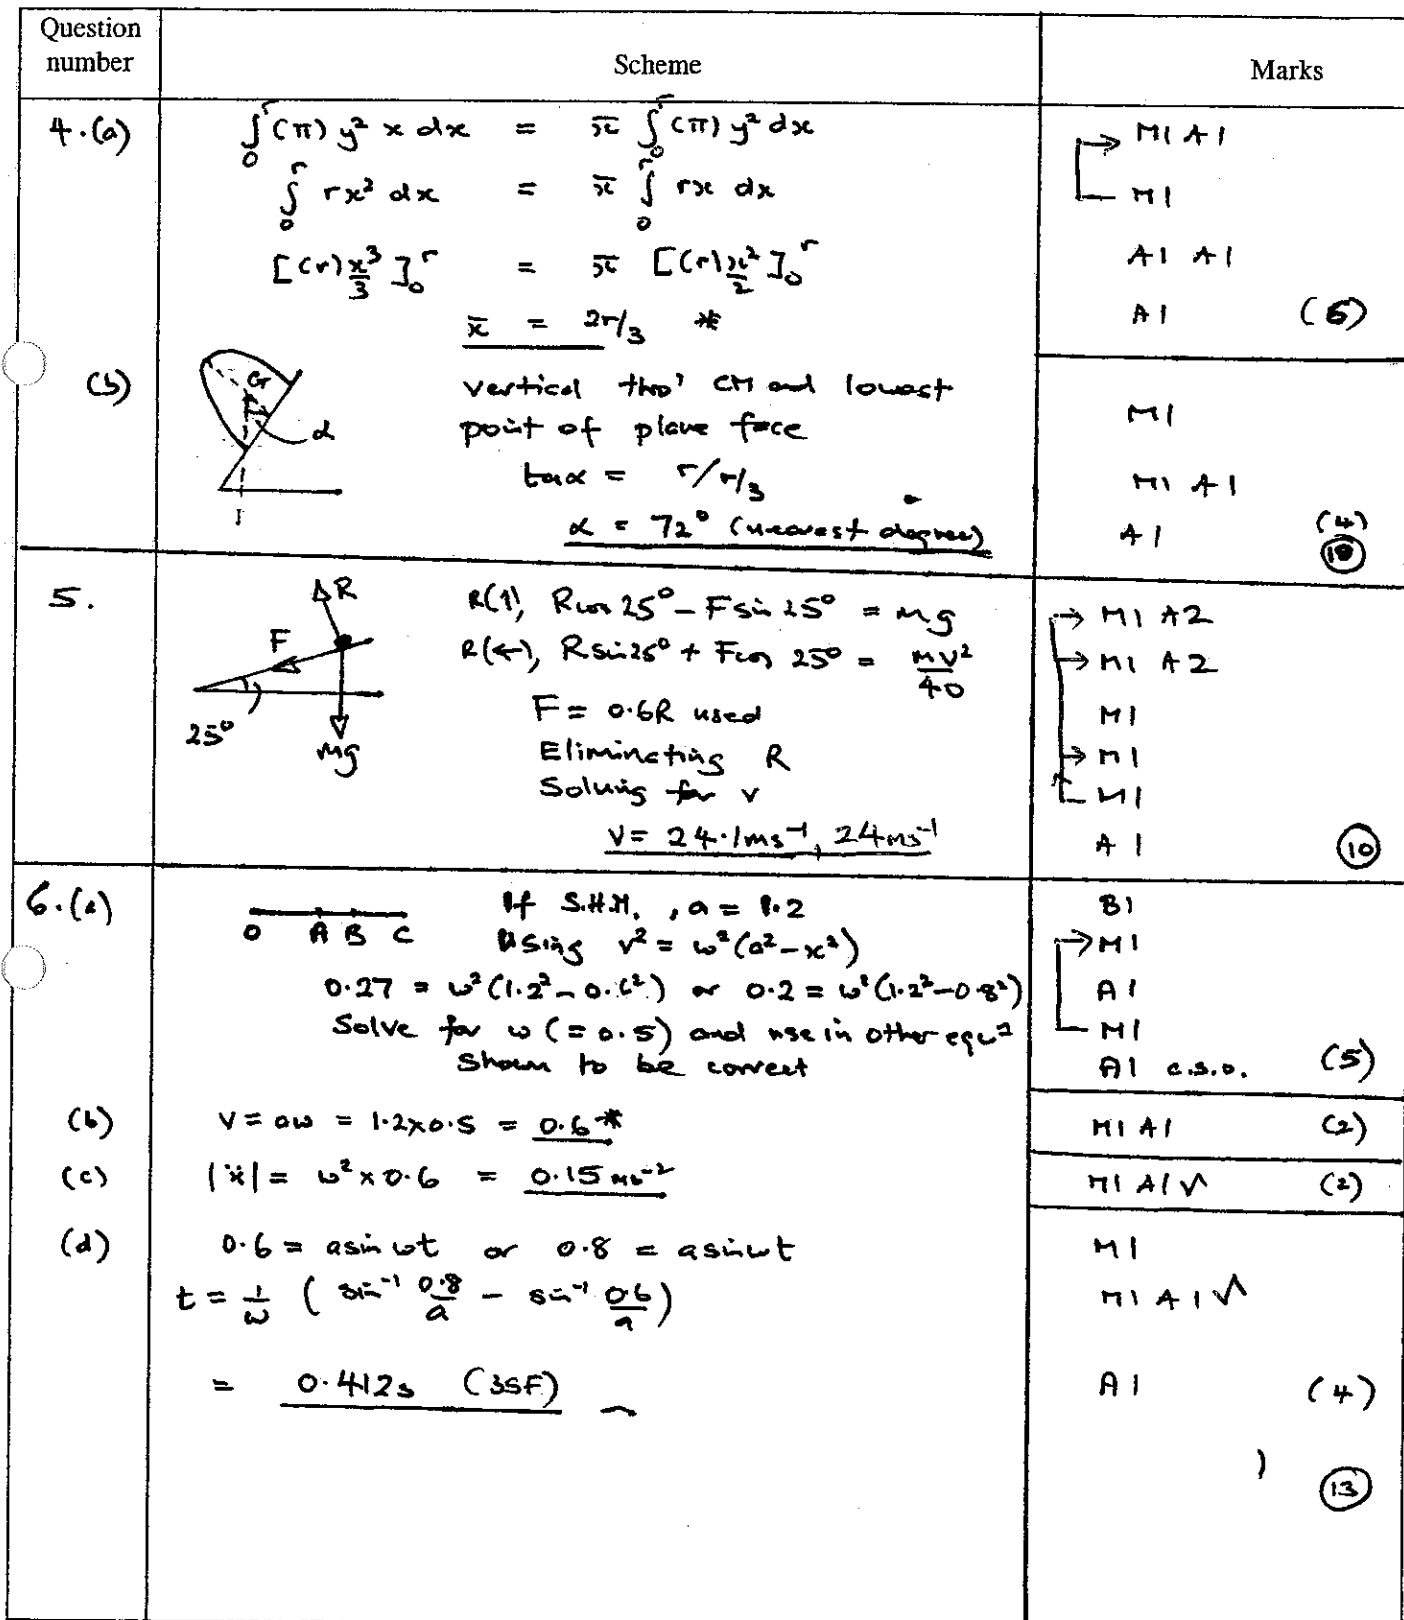 Question number
Scheme
Marks
4.(a)
∫₀ʳ (π) y² x dx = x̄ ∫₀ʳ (π) y² dx
M1 A1
∫₀ʳ rx² dx = x̄ ∫₀ʳ rx dx
M1
[(r) x³/3]₀ʳ = x̄ [(r) x²/2]₀ʳ
A1 A1
x̄ = 2r/3 *
A1 (6)
(b)
G
α
vertical thro' CM and lowest
point of plane face
M1
tan α = r / r/3
M1 A1
α = 72° (nearest degree)
A1 (4)
10
5.
R
F
25°
mg
R(↑), R cos 25° – F sin 25° = mg
M1 A2
R(←), R sin 25° + F cos 25° = mv²/40
M1 A2
F = 0.6R used
M1
Eliminating R
M1
Solving for v
M1
v = 24.1 ms⁻¹, 24 ms⁻¹
A1 10
6.(a)
O A B C
If S.H.M., a = 1.2
B1
Using v² = ω²(a² – x²)
M1
0.27 = ω²(1.2² – 0.6²) or 0.2 = ω²(1.2² – 0.8²)
A1
Solve for ω (= 0.5) and use in other equⁿ
M1
Shown to be correct
A1 c.s.o. (5)
(b)
v = aω = 1.2 × 0.5 = 0.6 *
M1 A1 (2)
(c)
|ẍ| = ω² × 0.6 = 0.15 ms⁻²
M1 A1√ (2)
(d)
0.6 = a sin ωt or 0.8 = a sin ωt
M1
t = 1/ω ( sin⁻¹ 0.8/a – sin⁻¹ 0.6/a )
M1 A1√
= 0.412s (3SF)
A1 (4)
13